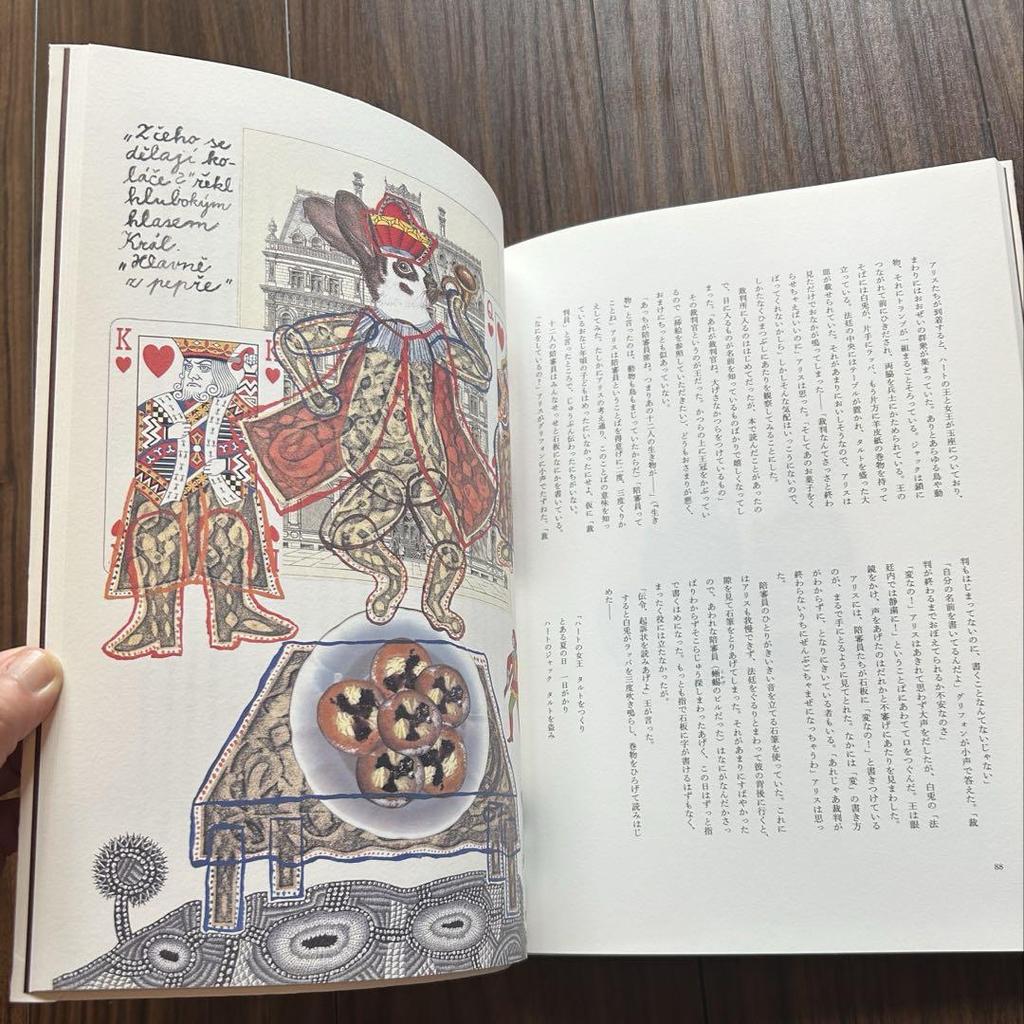 „Z čeho se
dělají ko-
láče?" řekl
hlubokým
hlasem
Král.
„Hlavně
z pepře"
K
K
Q
アリスたちが到着すると、ハートの王と女王が玉座についており、
まわりにはおおぜいの群衆が集まっていた。ありとあらゆる鳥や動
物、それにトランプが一組まるごとそろっている。ジャックは鎖に
つながれて前にひきだされ、両脇を兵士にかためられている。王の
そばには白兎が、片手にラッパ、もう片方に羊皮紙の巻物を持って
立っている。法廷の中央にはテーブルが置かれ、タルトを盛った大
皿が載せられていた。それがあまりにおいしそうなので、アリスは
見ただけでおなかが鳴ってしまった――「裁判なんてさっさと終わ
らせちゃえばいいのに」アリスは思った。「そしてあのお菓子をく
ばってくれないかしら」しかしそんな気配はいっこうにないので、
しかたなくひまつぶしにあたりを観察してみることにした。
裁判所に入るのははじめてだったが、本で読んだことがあったの
で、目に入るものが名前を知っているものばかりで嬉しくなってし
まった。「あれが裁判官ね。大げさなかつらをつけているもの」
その裁判官というのが王だった。かつらの上に王冠をかぶってい
るので（挿絵を参照していただきたい）、どうもおさまりが悪く、
おまけにちっとも似あっていない。
「あっちが陪審員席ね。つまりあの十二人の生き物が――」（「生き
物」と言ったのは、動物も鳥もまじっていたからだ）「陪審員って
ことね」アリスは陪審員ということばを得意げに二度、三度くりか
えしてみた。たしかにアリスの考え通り、このことばの意味を知っ
ているおなじ年頃の子どもはめったにいなかったにせよ、仮に「裁
判員」と言ったところで、じゅうぶん伝わったにちがいない。
十二人の陪審員はみんなせっせと石板になにかを書いている。
「なにをしているの？」アリスがグリフォンに小声でたずねた。「裁
判もはじまってないのに、書くことなんてないじゃない」
「自分の名前を書いてるんだよ」グリフォンが小声で答えた。「裁
判が終わるまでおぼえてられるか不安なのさ」
「変なの！」アリスはあきれて思わず大声をだしたが、白兎の「法
廷内では静粛に！」ということばにあわてて口をつぐんだ。王は眼
鏡をかけ、声をあげたのはだれかと不審げにあたりを見まわした。
アリスには、陪審員たちが石板に「変なの！」と書きつけている
のが、まるで手にとるように見てとれた。なかには「変」の書き方
がわからずに、となりにきいている者もいる。「あれじゃあ裁判が
終わらないうちにぜんぶごちゃまぜになっちゃうわ」アリスは思っ
た。
陪審員のひとりがきいきい音を立てる石筆を使っていた。これに
はアリスも我慢できず、法廷をぐるりとまわって彼の背後に行くと、
隙を見て石筆をとりあげてしまった。それがあまりにすばやかった
ので、あわれな陪審員（蜥蜴のビルだった）はなにがなんだかさっ
ぱりわからずそこらじゅう探しまわったあげく、この日はずっと指
で書くはめになった。もっとも指で石板に字が書けるはずもなく、
まったく役には立たなかったが。
「伝令、起訴状を読みあげよ」王が言った。
すると白兎がラッパを三度吹き鳴らし、巻物をひろげて読みはじ
めた――
「ハートの女王　タルトをつくり
とある夏の日　一日がかり
ハートのジャック　タルトを盗み
88